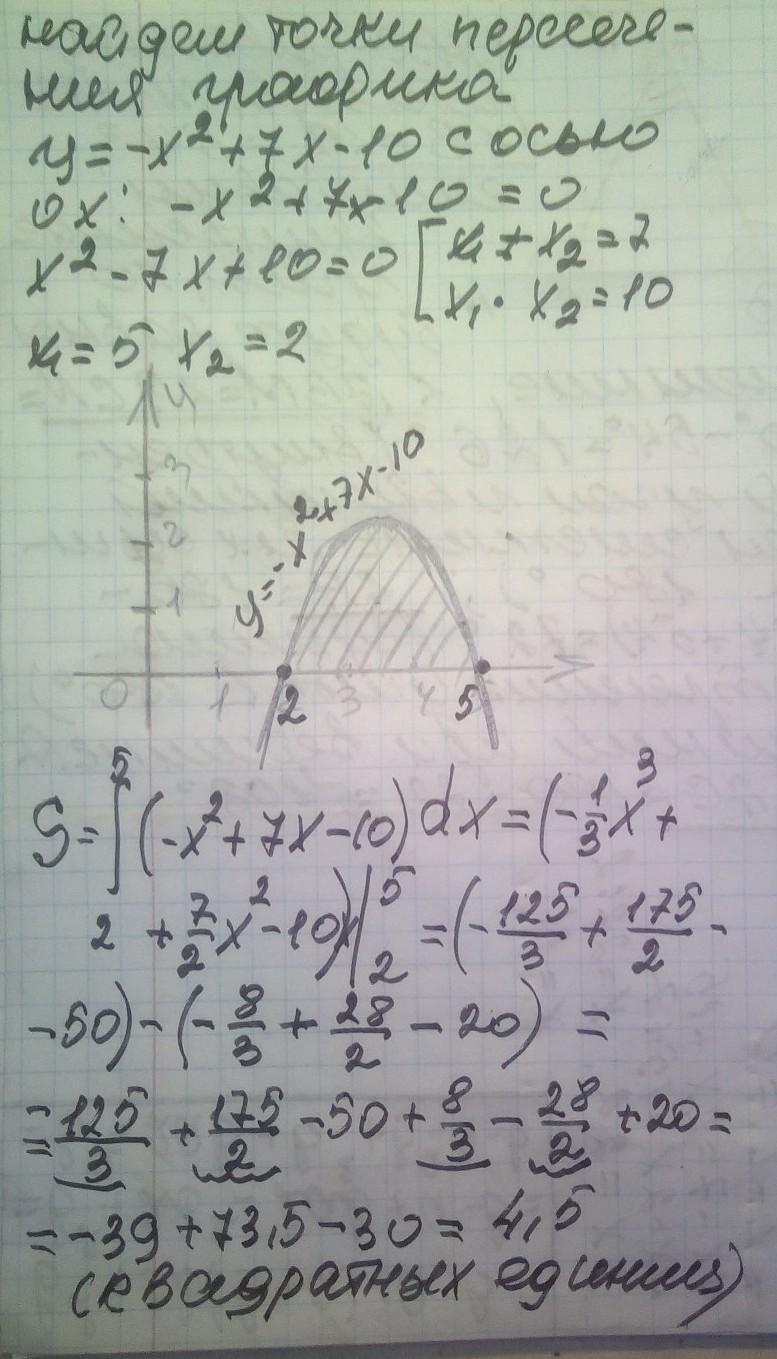 найдем точки пересече-
ния графика
y = -x² + 7x - 10 с осью
ox: -x² + 7x - 10 = 0
x² - 7x + 10 = 0 [ x₁ + x₂ = 7
x₁ · x₂ = 10
x₁ = 5 x₂ = 2
y
3
2
1
y = -x²+7x-10
0 1 2 3 4 5
S = ∫ 5 (-x² + 7x - 10) dx = (-1/3 x³ +
2 + 7/2 x² - 10x) |⁵₂ = (-125/3 + 175/2 -
- 50) - (-8/3 + 28/2 - 20) =
= -125/3 + 175/2 - 50 + 8/3 - 28/2 + 20 =
= -39 + 73,5 - 30 = 4,5
(квадратных единиц)